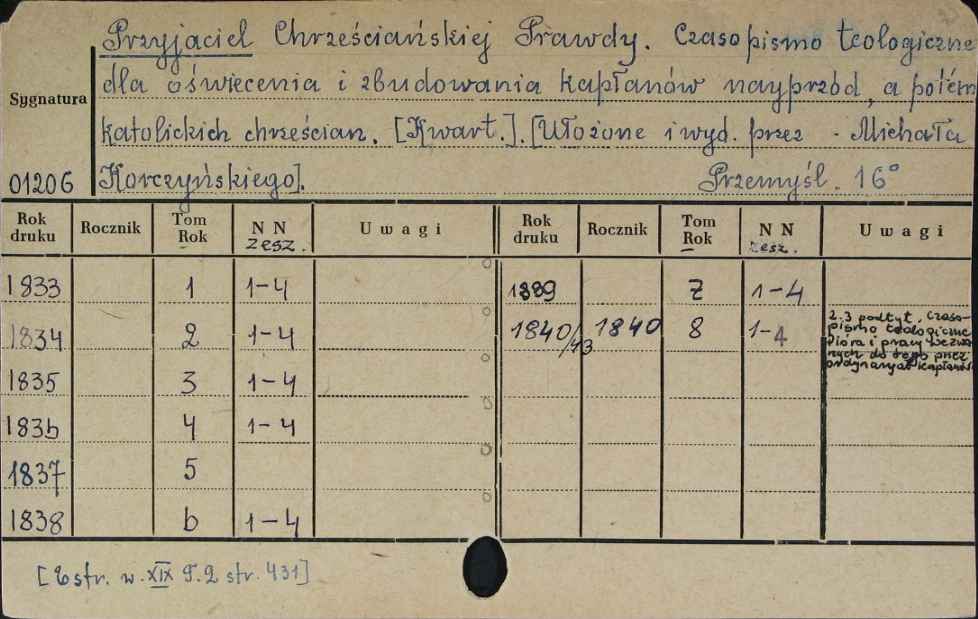 Przyjaciel Chrześciańskiej Prawdy. Czasopismo teologiczne
dla oświecenia i zbudowania kapłanów nayprzód, a potém
Sygnatura
katolickich chrześcian. [Kwart.]. [Ułożone i wyd. przez Michała
01206 Korczyńskiego]. Przemyśl. 16°
Rok druku Rocznik Tom Rok NN zesz. Uwagi Rok druku Rocznik Tom Rok NN zesz. Uwagi
1833 1 1-4 1889 7 1-4
1834 2 1-4 1840/43 1840 8 1-4
2.3 podtyt. Czaso-
pismo teologiczne
pióra i pracy wezwa-
nych do tego przez
ordynaryat kapłanów
1835 3 1-4
1836 4 1-4
1837 5
1838 6 1-4
[Estr. w. XIX T.2 str. 431]